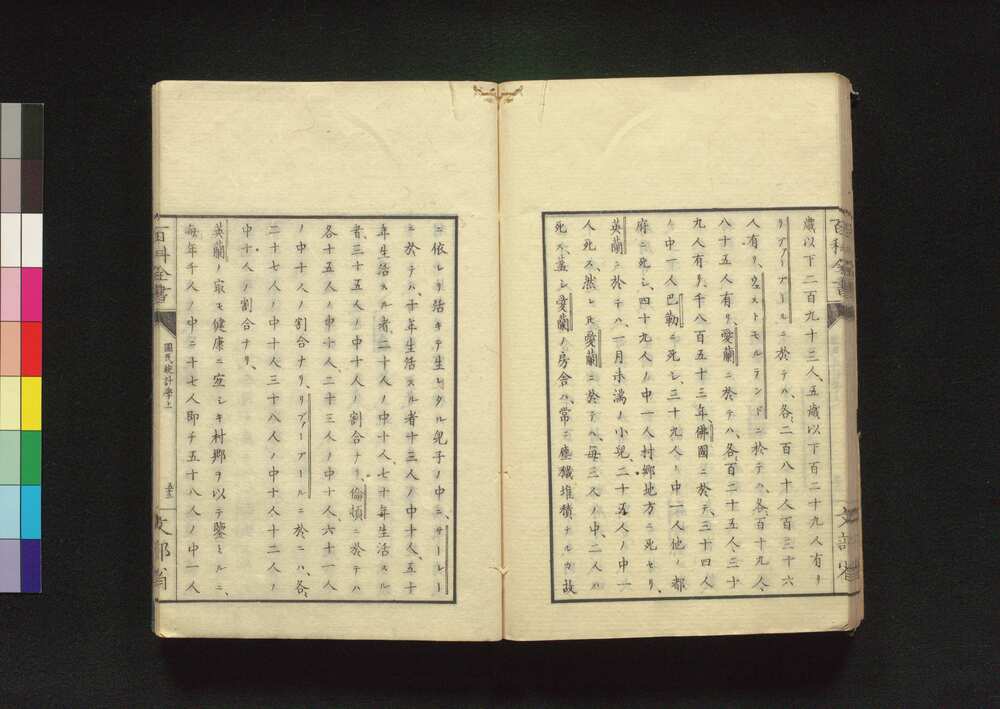 歳以下二百九十三人、五歳以下百二十九人有リ
リヴァーアールニ於テハ、各二百八十人百三十六
人有リ、ウェストモルランドニ於テハ、各百十九人、
八十五人有リ、愛蘭ニ於テハ、各百二十五人、三十
九人有リ、千八百五十三年佛國ニ於テ、三十四人
ノ中一人巴勒ニ死シ、三十九人ノ中一人他ノ都
府ニ死シ、四十九人ノ中一人村郷地方ニ死セリ、
英蘭ニ於テハ、一月未満ノ小兒二十五人ノ中一
人死ス、然レ𪜈愛蘭ニ於テハ、毎三人ノ中、二人ハ
死ス、蓋シ愛蘭ノ房舎ハ、常ニ塵穢堆積ナルカ故
百科全書
文部省
ニ依レリ活キテ生レタル兒子ノ中ニ、サーレー
ニ於テハ、十年生活スル者十三人ノ中十人、五十
年生活スル者、二十人ノ中十人、七十年生活スル
者、三十五人ノ中十人ノ割合ナリ、倫頓ニ於テハ
各十五人ノ中十人、二十三人ノ中十人、六十一人
ノ中十人ノ割合ナリ、リヴァーアールニ於ニハ、各
二十七人ノ中十人三十八人ノ中十人十二人ノ
中十人ノ割合ナリ、
英蘭ノ最モ健康ニ宜シキ村郷ヲ以テ鑒ミルニ、
毎年千人ノ中ニ十七人即チ五十八人ノ中一人
百科全書
國民統計學上
五三
文部省